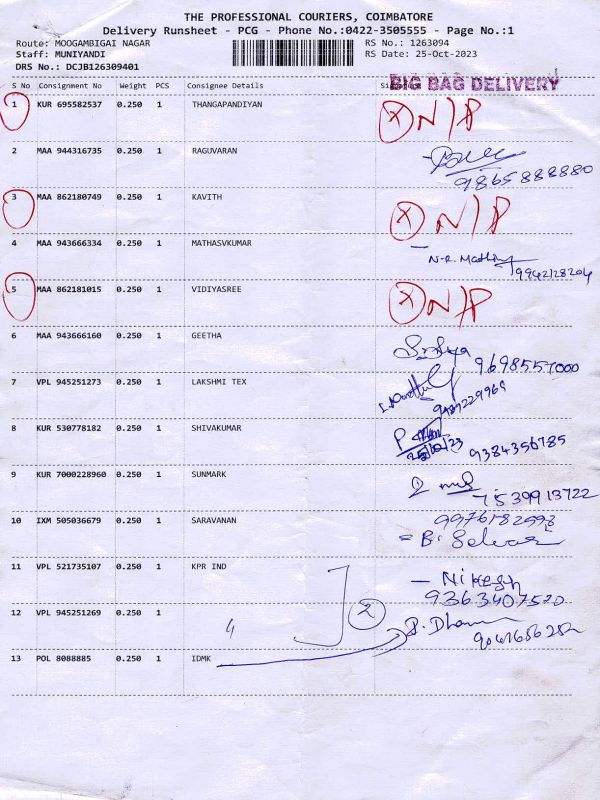 THE PROFESSIONAL COURIERS, COIMBATORE
Delivery Runsheet - PCG - Phone No.:0422-3505555 - Page No.:1
Route: MOOGAMBIGAI NAGAR RS No.: 1263094
Staff: MUNIYANDI RS Date: 25-Oct-2023
DRS No.: DCJB126309401
BIG BAG DELIVERY
S No Consignment No Weight PCS Consignee Details
1 KUR 695582537 0.250 1 THANGAPANDIYAN X N/P
2 MAA 944316735 0.250 1 RAGUVARAN
9865888880
3 MAA 862180749 0.250 1 KAVITH X N/P
4 MAA 943666334 0.250 1 MATHASVKUMAR
9942128204
5 MAA 862181015 0.250 1 VIDIYASREE X N/P
6 MAA 943666160 0.250 1 GEETHA
9698557000
7 VPL 945251273 0.250 1 LAKSHMI TEX
8 KUR 530778182 0.250 1 SHIVAKUMAR
25/10/23 9384356785
9 KUR 7000228960 0.250 1 SUNMARK
7539913722
10 IXM 505036679 0.250 1 SARAVANAN
B. Selvar
11 VPL 521735107 0.250 1 KPR IND Nikesh
9363407520
12 VPL 945251269 0.250 1 4 2 P. Dharun
13 POL 8088885 0.250 1 IDMK